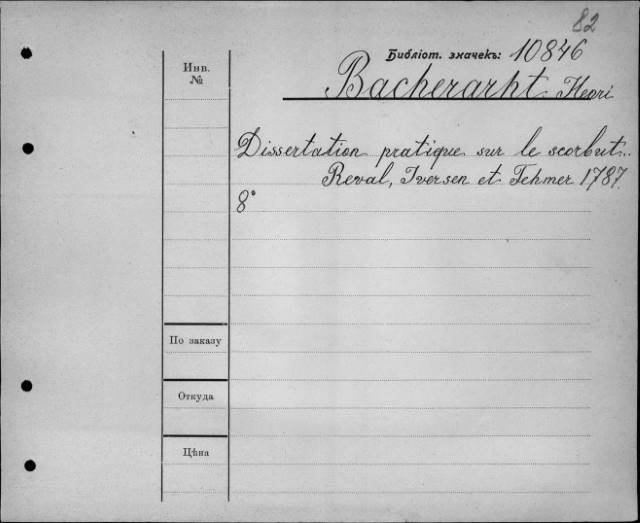 82
Библіот. значекъ: 10846
Инв. №
Bacherarht Henri
Dissertation pratique sur le scorbut..
Reval, Iversen et Fehmer 1787.
8°
По заказу
Откуда
Цѣна